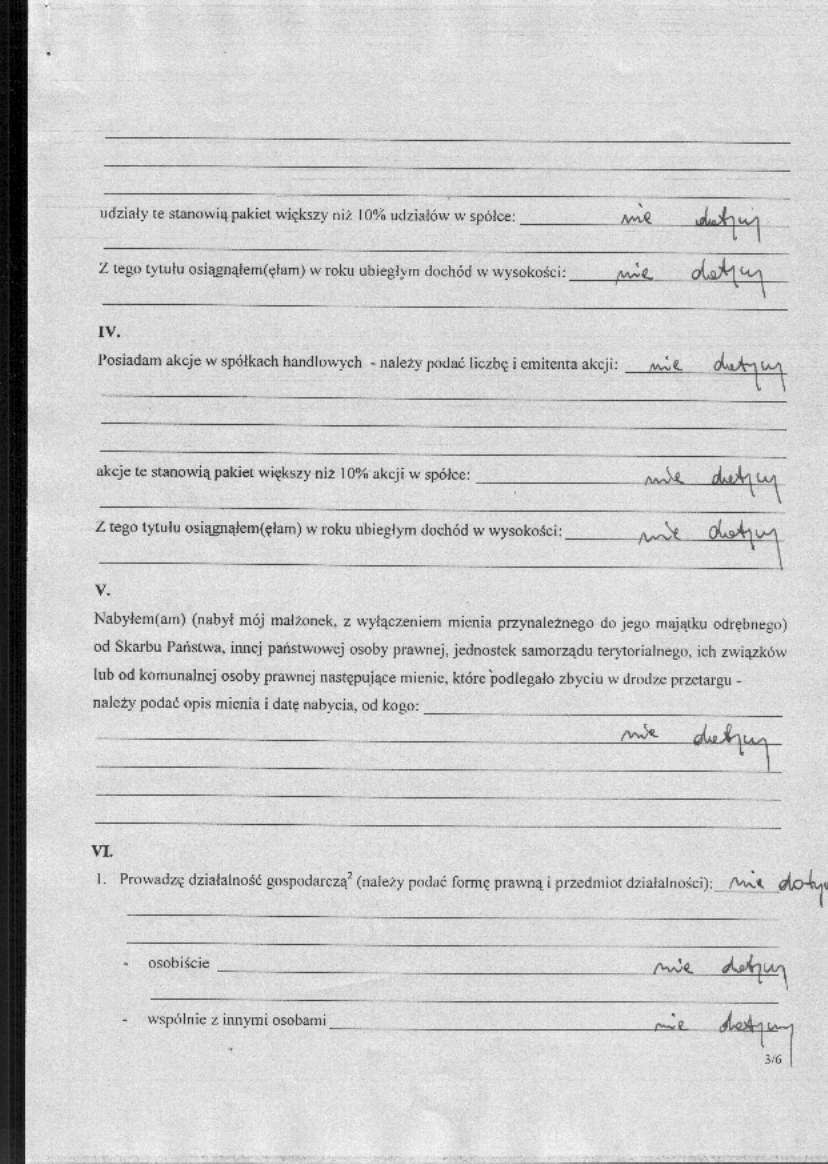 udziały te stanowią pakiet większy niż 10% udziałów w spółce: nie dotyczy
Z tego tytułu osiągnąłem(ęłam) w roku ubiegłym dochód w wysokości: nie dotyczy
IV.
Posiadam akcje w spółkach handlowych - należy podać liczbę i emitenta akcji: nie dotyczy
akcje te stanowią pakiet większy niż 10% akcji w spółce: nie dotyczy
Z tego tytułu osiągnąłem(ęłam) w roku ubiegłym dochód w wysokości: nie dotyczy
V.
Nabyłem(am) (nabył mój małżonek, z wyłączeniem mienia przynależnego do jego majątku odrębnego)
od Skarbu Państwa, innej państwowej osoby prawnej, jednostek samorządu terytorialnego, ich związków
lub od komunalnej osoby prawnej następujące mienie, które podlegało zbyciu w drodze przetargu -
należy podać opis mienia i datę nabycia, od kogo:
nie dotyczy
VI.
1. Prowadzę działalność gospodarczą² (należy podać formę prawną i przedmiot działalności): nie dotyczy
- osobiście nie dotyczy
- wspólnie z innymi osobami nie dotyczy
3/6